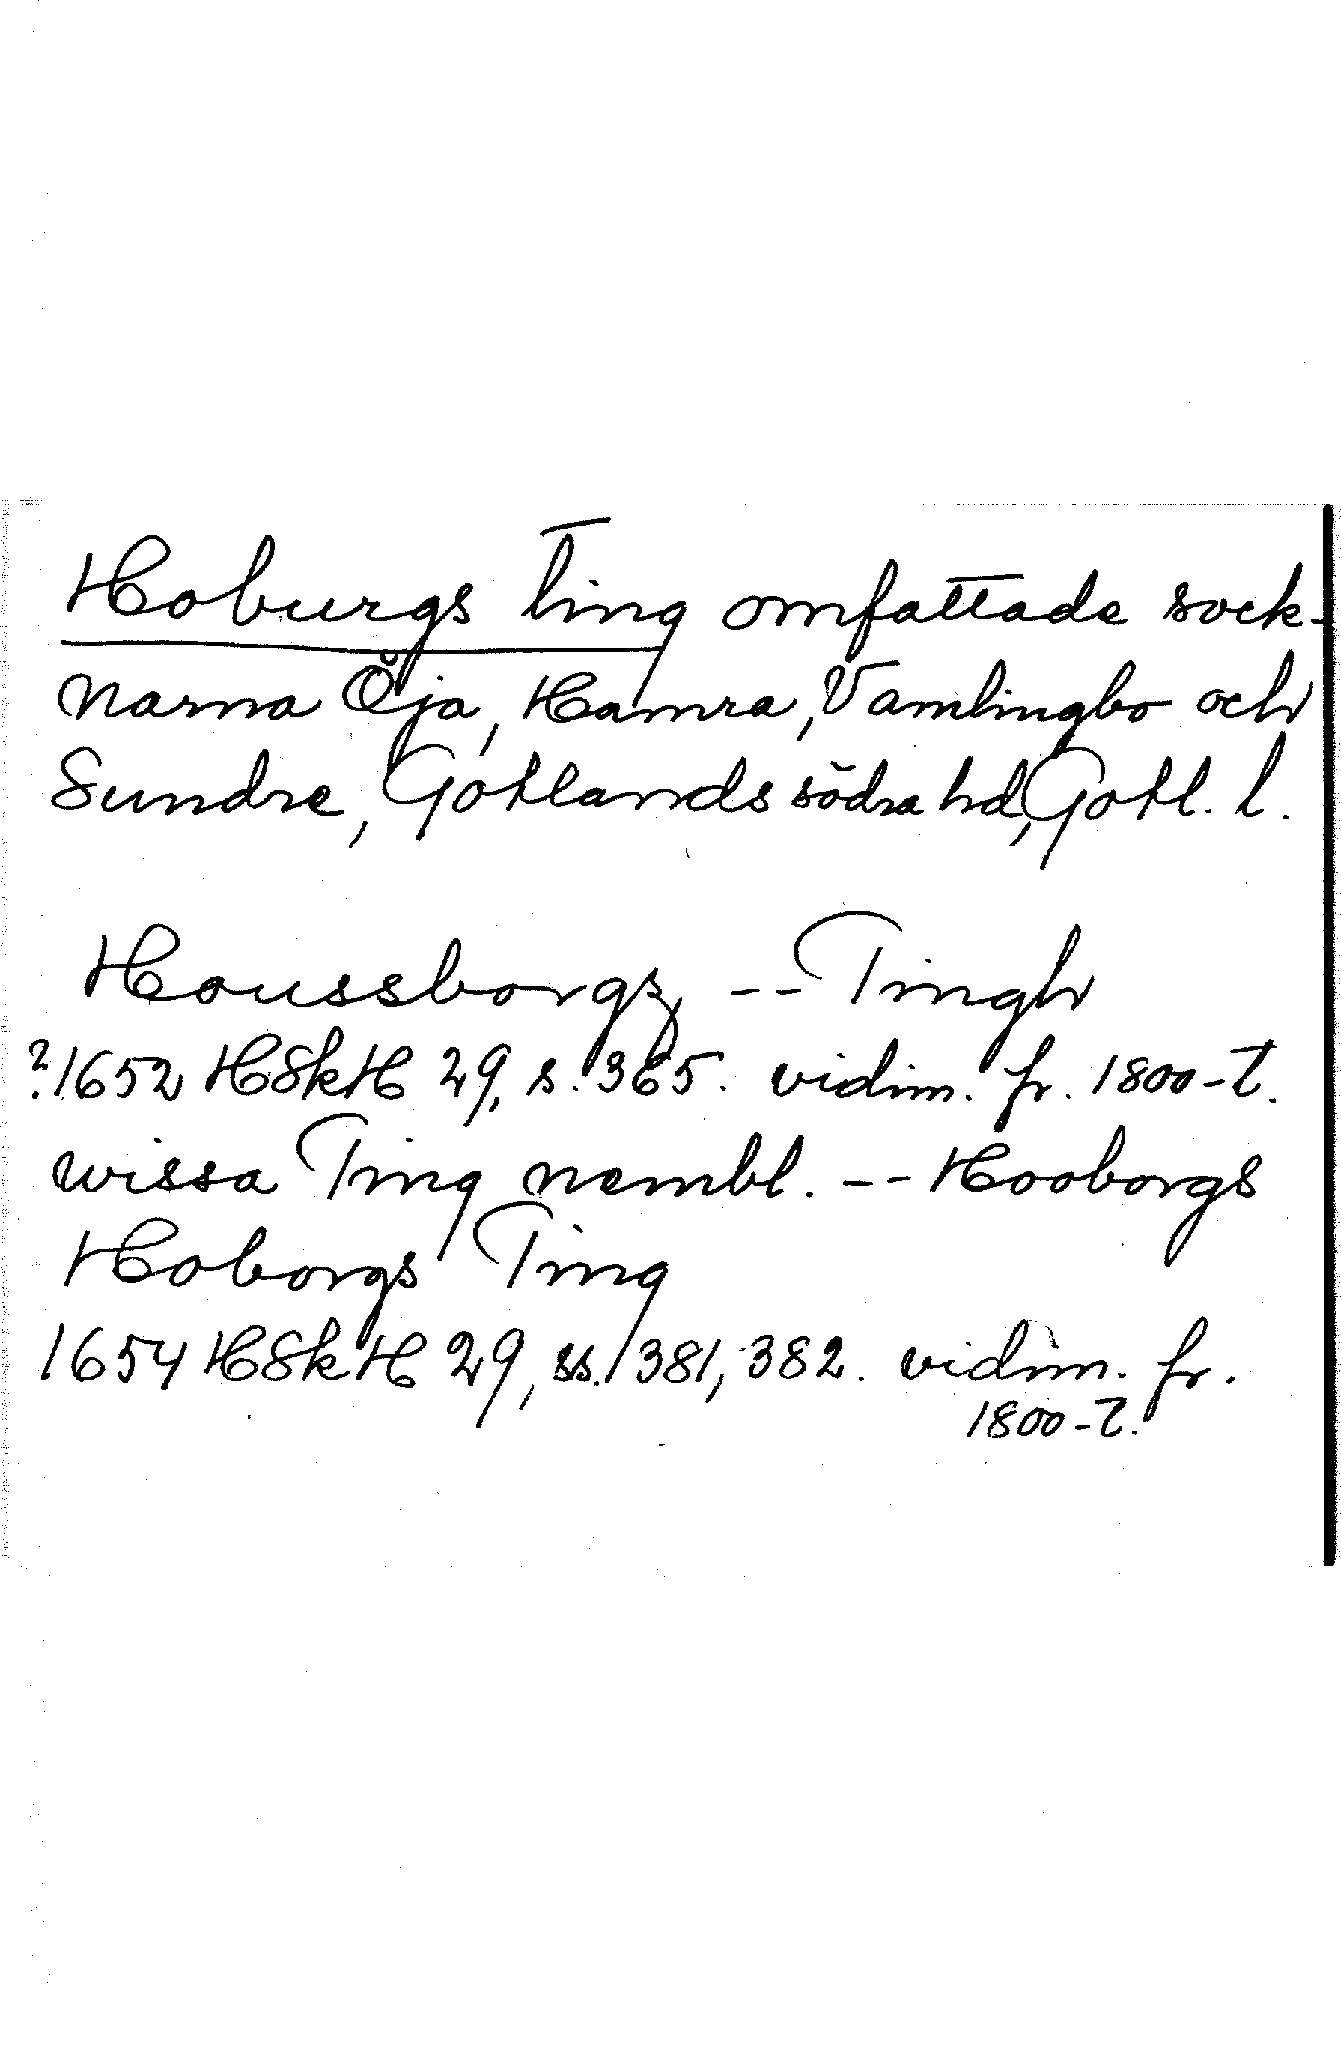 Hoburgs ting omfattade sock-
narna Öja, Hamra, Vamlingbo och
Sundre, Gotlands södra hd, Gotl. l.
Houssborgz -- Tingh
?1652 HSkH 29, s. 365. vidim. fr. 1800-t.
wissa Ting nembl. -- Hooborgs
Hoborgs Ting
1654 HSkH 29, ss. 381, 382. vidim. fr.
1800-t.